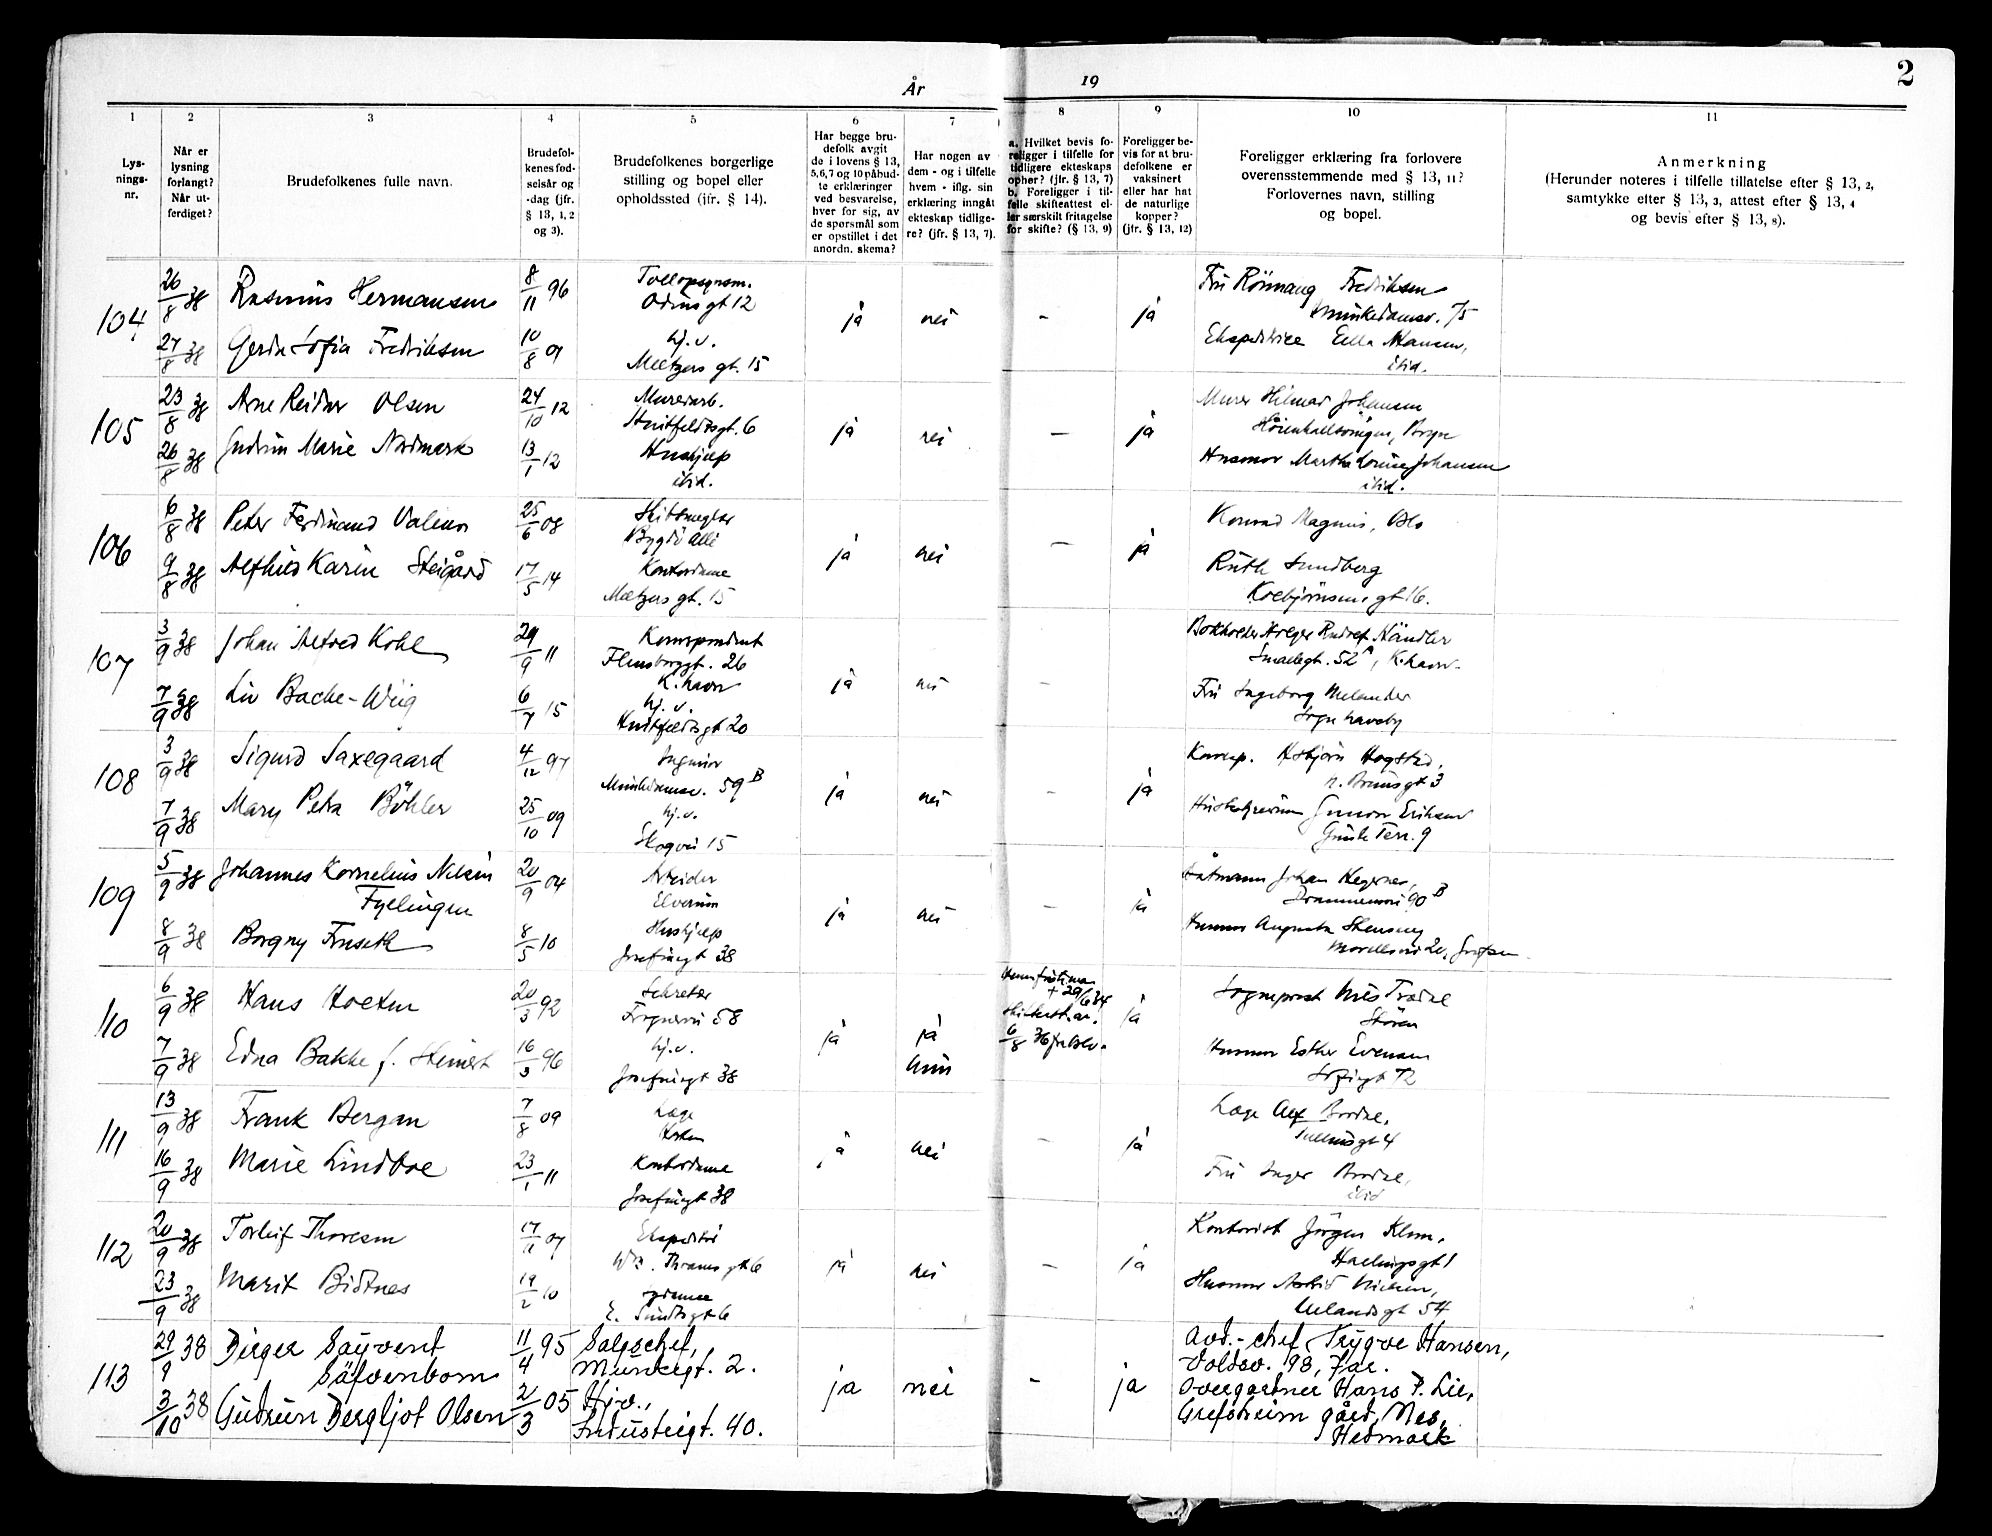 År 19
2
1 2 3 4 5 6 7 8 9 10 11
Lys-
nings-
nr.
Når er
lysning
forlangt?
Når ut-
ferdiget?
Brudefolkenes fulle navn.
Brudefol-
kenes fød-
selsår og
-dag (jfr.
§ 13, 1, 2
og 3).
Brudefolkenes borgerlige
stilling og bopel eller
opholdssted (jfr. § 14).
Har begge bru-
defolk avgit
de i lovens § 13,
5,6,7 og 10 påbud-
te erklæringer
ved besvarelse,
hver for sig, av
de spørsmål som
er opstillet i det
anordn. skema?
Har nogen av
dem - og i tilfelle
hvem - iflg. sin
erklæring inngåt
ekteskap tidlige-
re? (jfr. § 13, 7).
a. Hvilket bevis fo-
religger i tilfelle for
tidligere ekteskaps
ophør? (jfr. § 13, 7)
b. Foreligger i til-
felle skifteattest el-
ler særskilt fritagelse
for skifte? (§ 13, 9)
Foreligger be-
vis for at bru-
defolkene er
vaksinert
eller har hat
de naturlige
kopper?
(jfr. § 13, 12)
Foreligger erklæring fra forlovere
overensstemmende med § 13, 11?
Forlovernes navn, stilling
og bopel.
Anmerkning
(Herunder noteres i tilfelle tillatelse efter § 13, 2,
samtykke efter § 13, 3, attest efter § 13, 4
og bevis efter § 13, 8).
104
26/8 38 Rasmus Hermansen 8/11 96
Odins gt 12
ja nei - ja
Fru Rönnaug Fredriksen
Munkedamsv. 75
27/8 38 Gerda Sofia Fredriksen 10/8 09
hj.v.
Meltzers gt. 15
Ella Hansen,
ibid.
105
23/8 38 Arne Reidar Olsen 24/10 12
Murerarb.
Huitfeldtsgt. 6
ja nei - ja
Murer Hilmar Johansen
Bryn
26/8 38 Gudrun Marie Nordmark 13/1 12
Hushjelp
ibid.
Husmor Martha Louise Johansen
ibid.
106
6/8 38 Peter Ferdinand 25/6 08
Skibsmegler
Bygdö Allé
ja nei - ja
Konrad Magnus, Oslo
9/8 38 Alfhild Karin Steigård 17/5 14
Kontordame
Meltzers gt. 15
Ruth Sundberg
gt 16.
107
3/9 38 Johan Alfred Kohl 29/9 11
Korrespondent
Flensborggt. 26
K.havn
ja nei -
Bokholder Holger Rudolf Händler
52 A, K.havn.
7/9 38 Liv Backe-Wiig 6/7 15
hj.v.
Huitfeldtsgt 20
Fru Ingeborg Melander
108
3/9 38 Sigurd Saxegaard 4/12 97
Ingeniör
Munkedamsv. 59 B
ja nei - ja
Korresp. Asbjörn Hogstad,
gt 3
7/9 38 Mary Petra Böhler 25/10 09
hj.v.
Skogvei 15
Gunvor Eriksen
Terr. 9
109
5/9 38 Johannes Kornelius Nilsen
Fyllingen
20/9 04
Arbeider
Elverum
ja nei - ja
Johan Hegernes,
Drammensvei 90 B
8/9 38 Borgny Fruseth 8/5 10
Hushjelp
Josefinegt 38
Husmor Augusta
20, Grefsen
110
6/9 38 Hans Holten 20/3 92
Sekretær
Frognervei 58
ja ja
hun
6/8 36
ja
Sogneprest Nils Trædal
Stören
7/9 38 Edna Bakke f. Steinert 16/3 96
hj.v.
Josefinegt 38
Husmor Esther Evensen
Sofiegt 72
111
13/9 38 Frank Bergan 7/8 09
Læge
ja nei - ja
Læge Alf Brodal,
Tullinsgt 4
16/9 38 Marie Lindboe 23/1 11
Kontordame
Josefinegt 38
Fru Inger Brodal,
ibid
112
20/9 38 Torleif Thoresen 17/11 07
Ekspeditör
Wm. Thranes gt 6
ja nei - ja
Kontorist Jörgen Klem,
gt 1
23/9 38 Marit Bidtnes 19/2 10
E. Sundts gt 6
Husmor Astrid Nielsen,
Uelandsgt 54
113
29/9 38 Birger Sayvent
Säfvenbom
11/4 95
Salgschef,
Munkegt. 2.
ja nei - ja
Avd.-chef Trygve Hansen,
Voldsv. 98, Jar.
3/10 38 Gudrun Bergljot Olsen 2/3 05
Hjv.,
Industrigt. 40.
Overgartner Hans P. Lie,
Grefsheim gård, Nes,
Hedmark